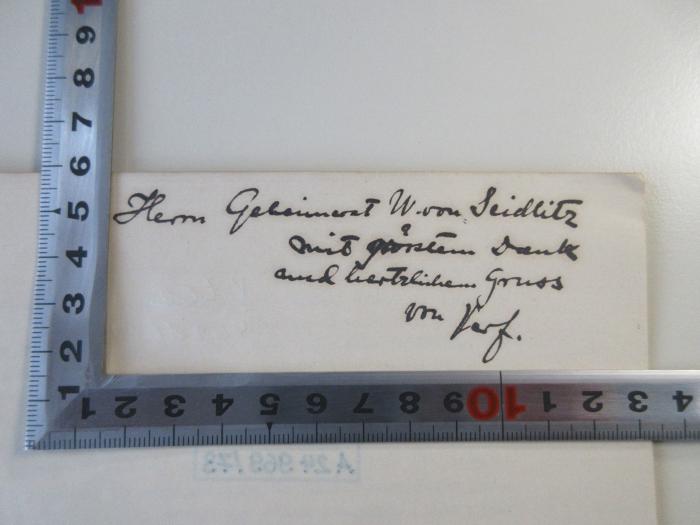 Herrn Geheimerat W. von Seidlitz
mit grörstem Dank
und hertzlichem Gruss
von Verf.
1 2 3 4 5 6 7 8 9 1
1 2 3 4 5 6 7 8 9 10 1 2 3 4
A 24 969/73